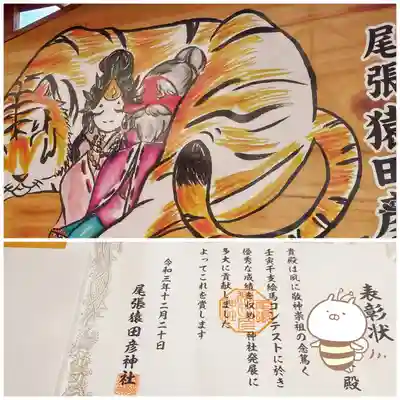 尾張猿田彦
表彰状
殿
貴殿は夙に敬神崇祖の念篤く
壬寅干支絵馬コンテストに於き
優秀な成績を収め神社発展に
多大に貢献しました
よってこれを賞します
令和三年十二月二十日
尾張猿田彦神社